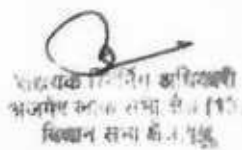 सहायक रिटर्निंग अधिकारी
अजमेर लोक सभा क्षेत्र (13)
विधान सभा क्षेत्र